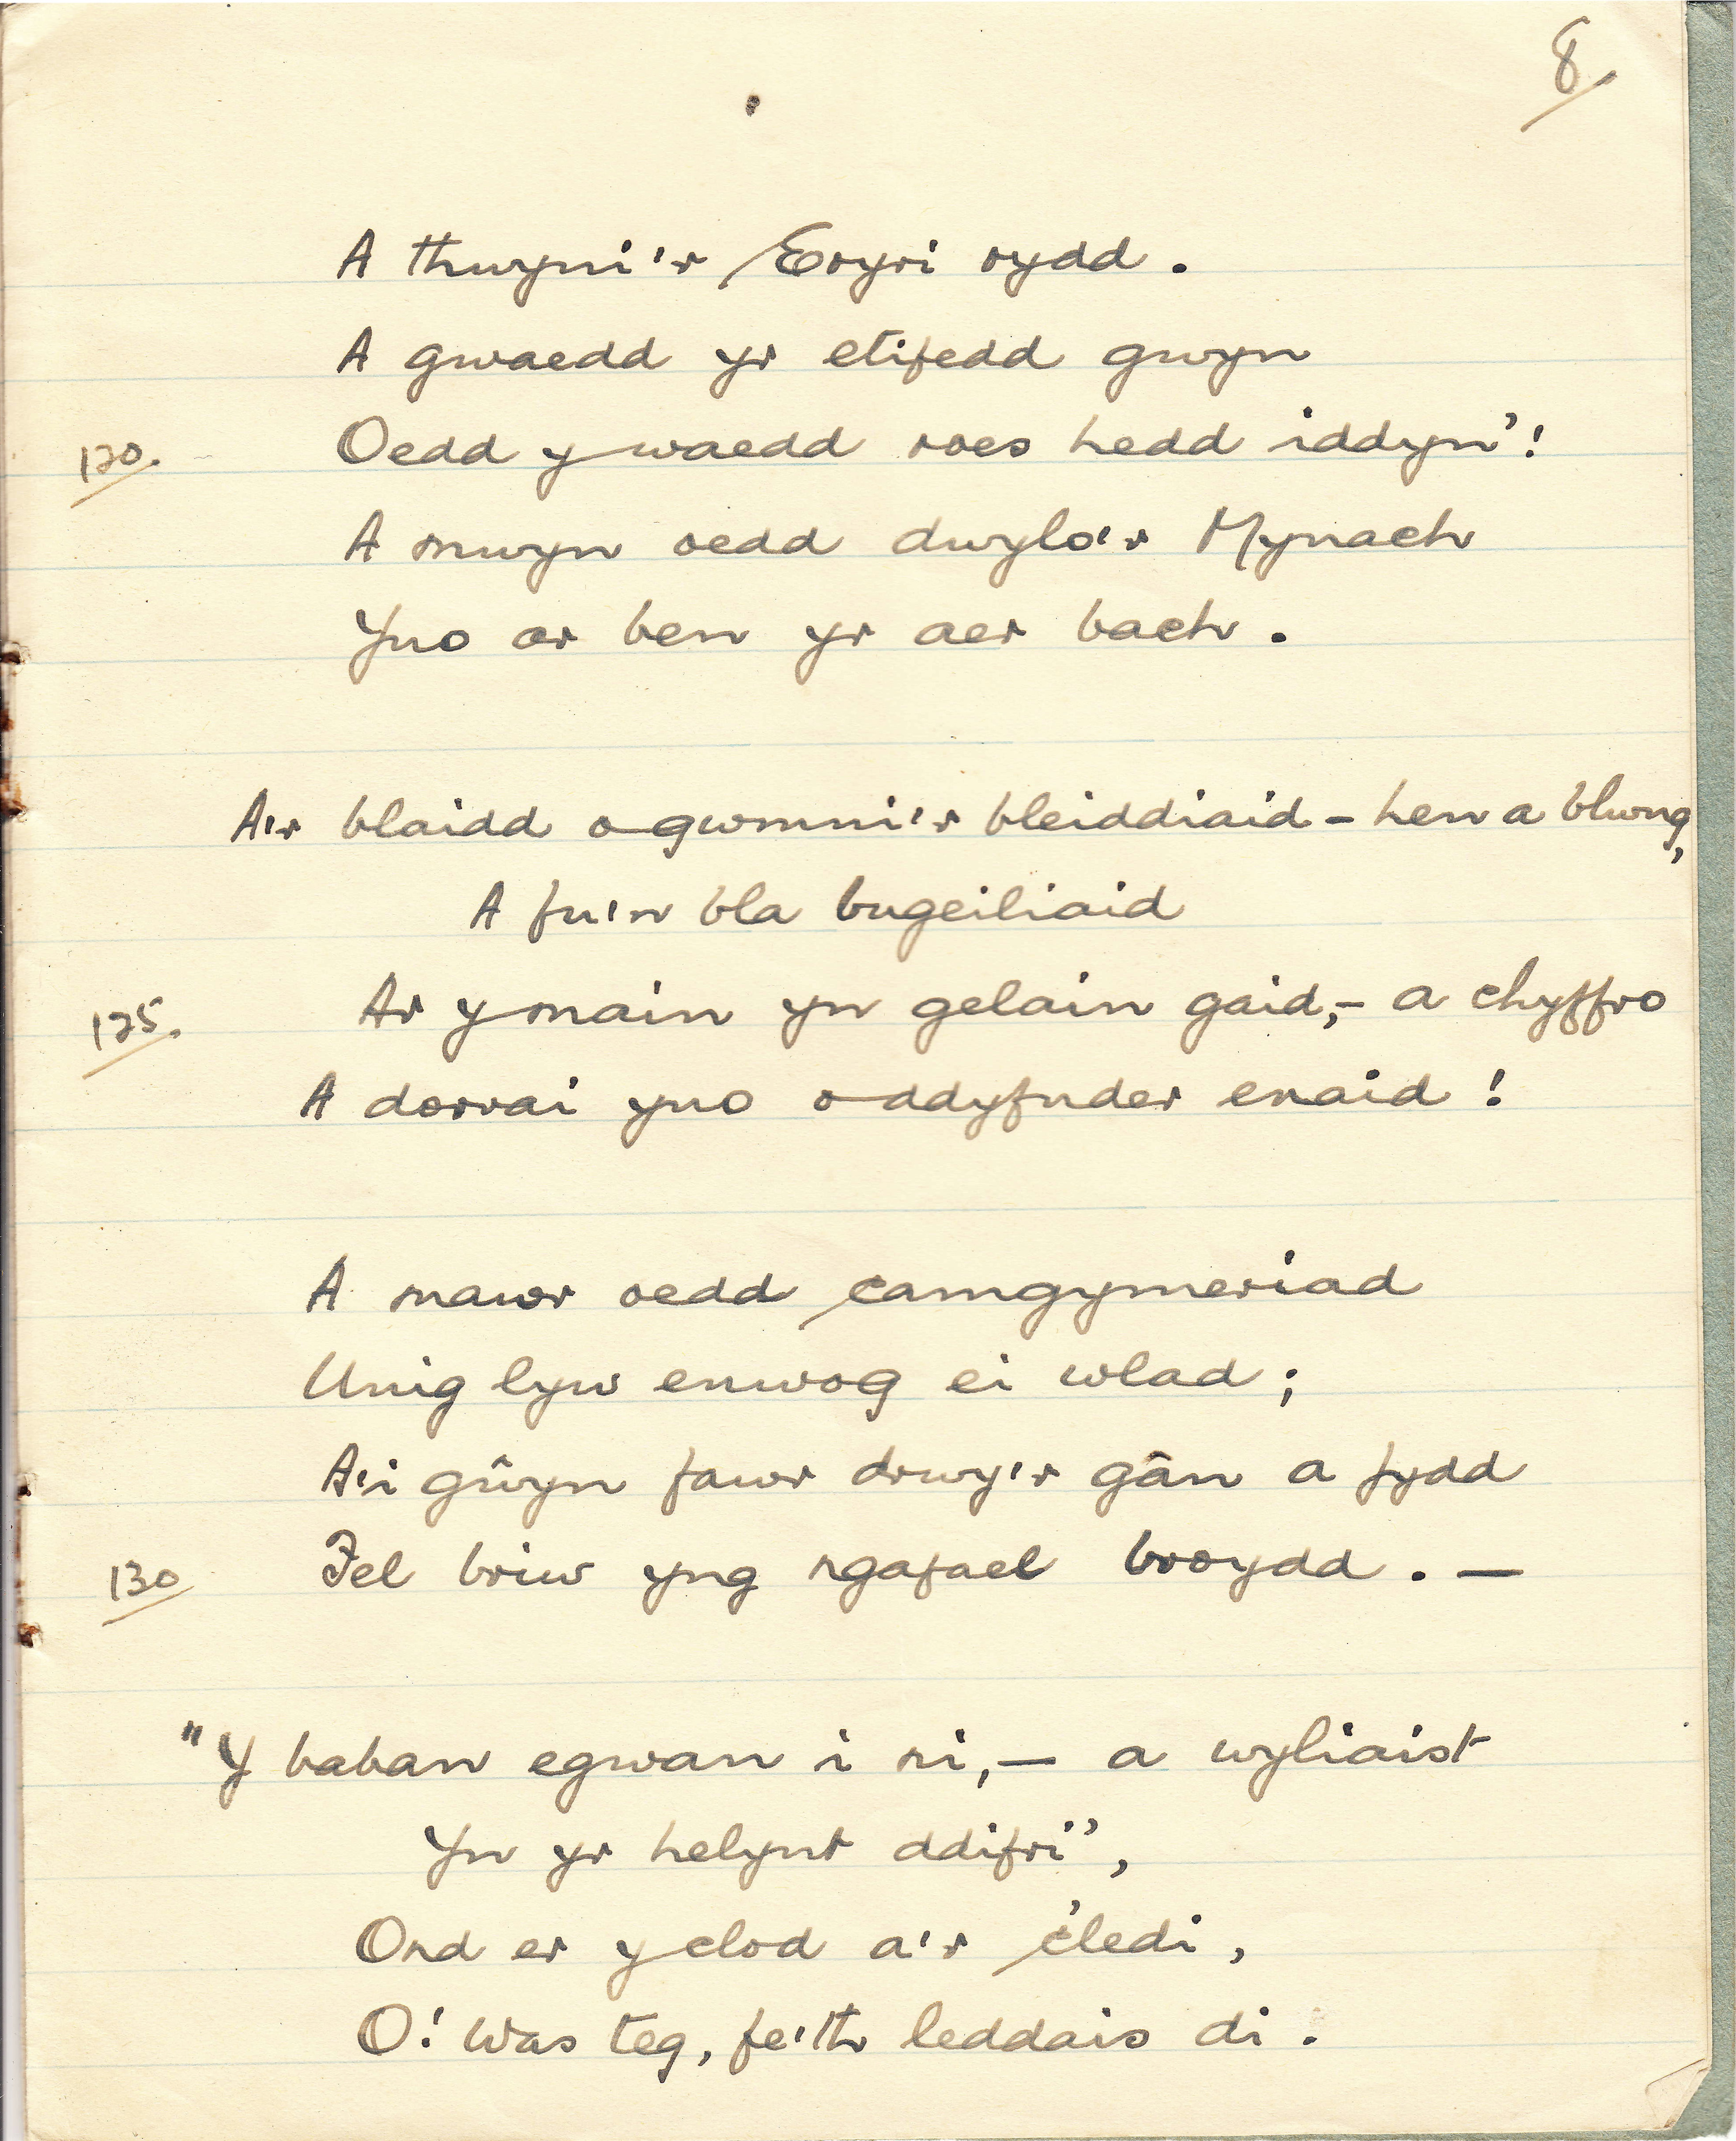 8
A thwyni'r Eryri rydd.
A gwaedd yr etifedd gwyn
120. Oedd y waedd roes hedd iddyn'!
A mwyn oedd dwylo'r Mynach
Yno ar ben yr aer bach.
A'r blaidd o gwmni'r bleiddiaid - hen a blwng,
A fu'n bla bugeiliaid
125. Ar y main yn gelain gaid,- a chyffro
A dorrai yno o ddyfnder enaid!
A mawr oedd camgymeriad
Unig lyw enwog ei wlad;
A'i gŵyn fawr drwy'r gân a fydd
130 Fel briw yng ngafael broydd. —
"Y baban egwan i ni,— a wyliaist
Yn yr helynt ddifri",
Ond er y clod a'r 'cledi,
O! was teg, fe'th leddais di.